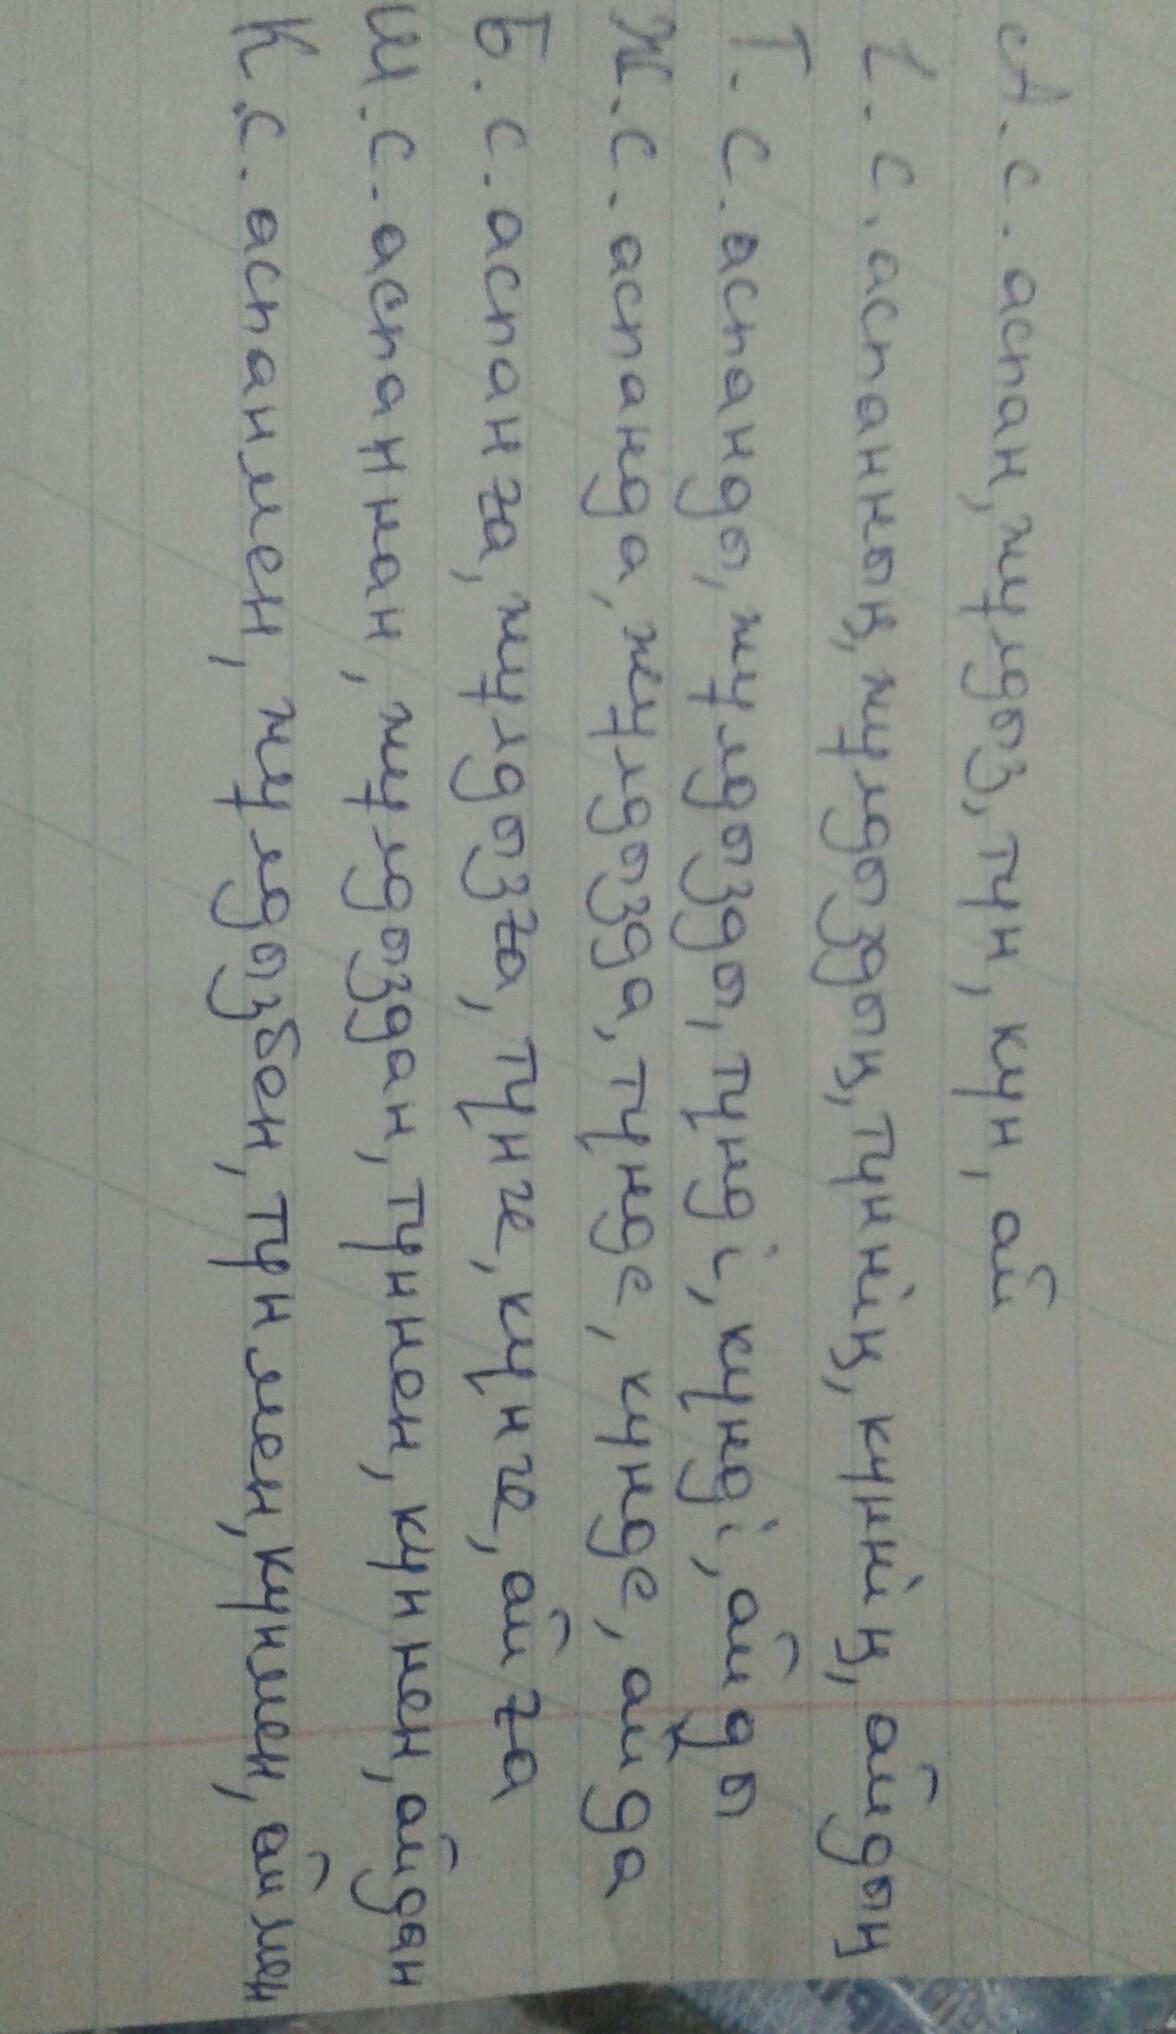 А.с. аспан, жұлдыз, түн, күн, ай
І.с. аспанның, жұлдыздың, түннің, күннің, айдың
Т.с. аспанды, жұлдызды, түнді, күнді, айды
Ж.с. аспанда, жұлдызда, түнде, күнде, айда
Б.с. аспанға, жұлдызға, түнге, күнге, айға
Ш.с. аспаннан, жұлдыздан, түннен, күннен, айдан
К.с. аспанмен, жұлдызбен, түнмен, күнмен, аймен